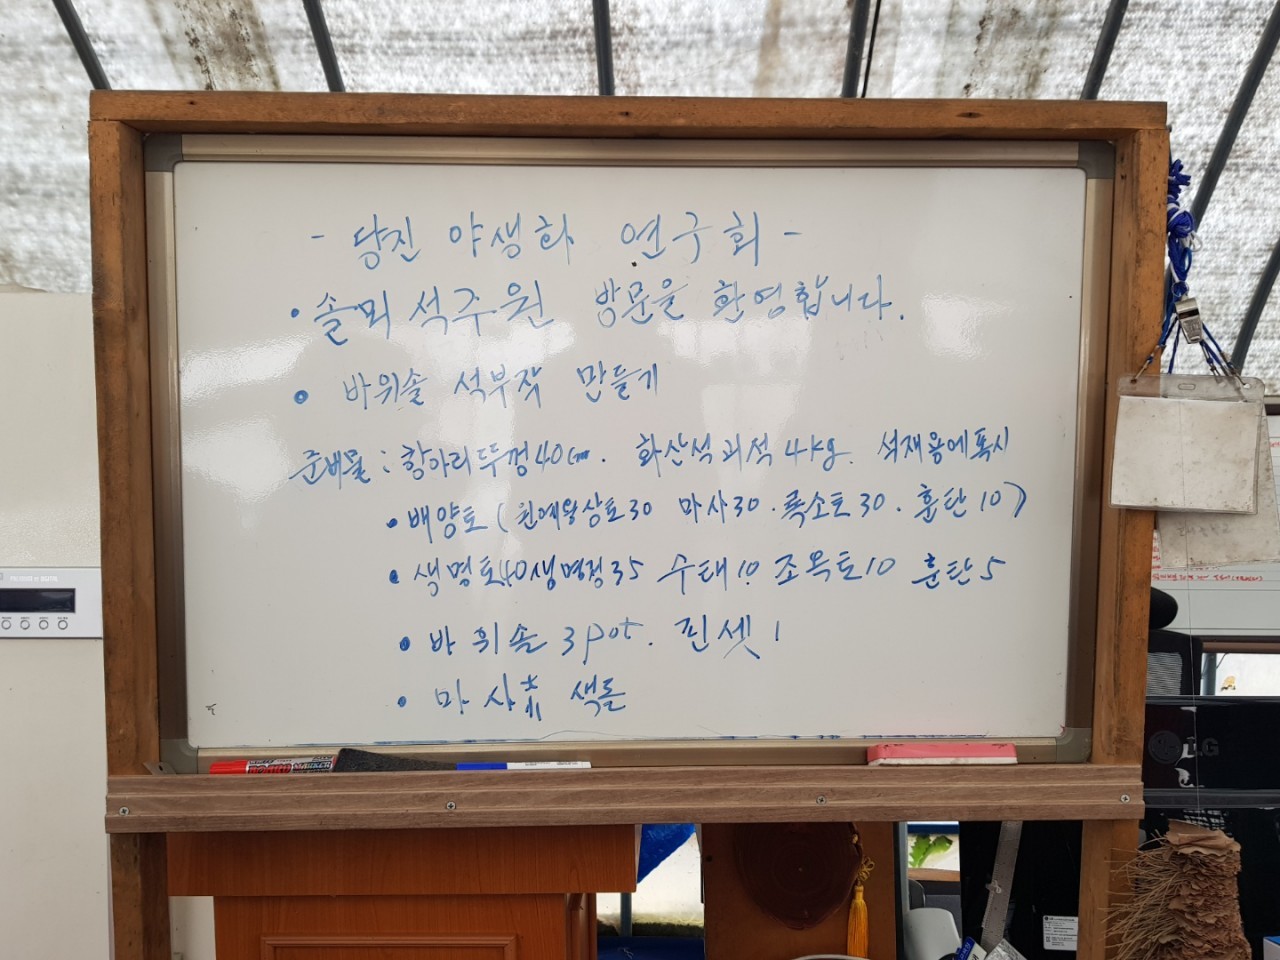 - 당진 야생화 연구회 -
• 솔뫼 석주원 방문을 환영합니다.
• 바위솔 석부작 만들기
준비물 : 항아리뚜껑40cm. 화산석괴석4kg. 석재용에폭시
• 배양토( 원예용상토30 마사30 . 녹소토30 . 훈탄10)
• 생명토40생명정35 수태10 조목토10 훈탄5
• 바위솔 3pot. 핀셋1
• 마사 색돌
LG